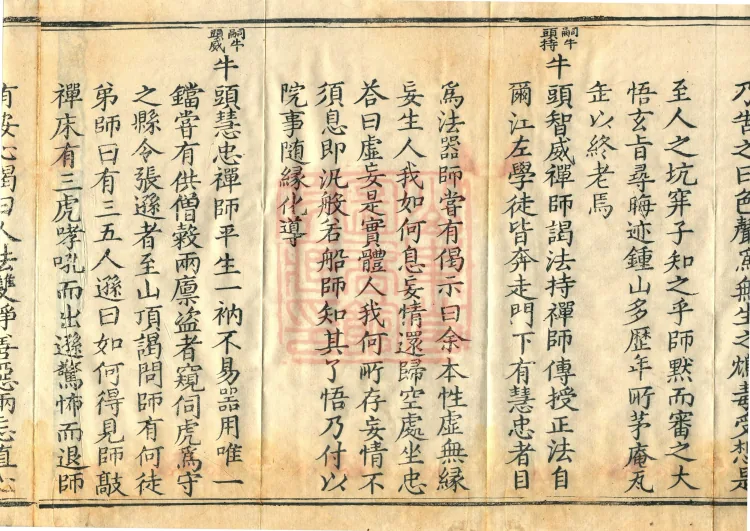 乃告之曰色聲爲無生之鴆毒受想是
至人之坑穽子知之乎師默而審之大
悟玄旨尋晦迹鍾山多歷年所茅庵瓦
缶以終老焉
嗣牛頭持
牛頭智威禪師謁法持禪師傳授正法自
爾江左學徒皆奔走門下有慧忠者目
爲法器師嘗有偈示曰余本性虛無縁
妄生人我如何息妄情還歸空處坐忠
荅曰虛妄是實體人我何所存妄情不
須息即汎般若船師知其了悟乃付以
院事随縁化導
嗣牛頭威
牛頭慧忠禪師平生一衲不易器用唯一
鐺嘗有供僧穀兩廩盜者窺伺虎爲守
之縣令張遜者至山頂謁問師有何徒
弟師曰有三五人遜曰如何得見師敲
禪床有三虎哮吼而出遜驚怖而退師
有安心偈曰人法雙淨善惡兩忘直心